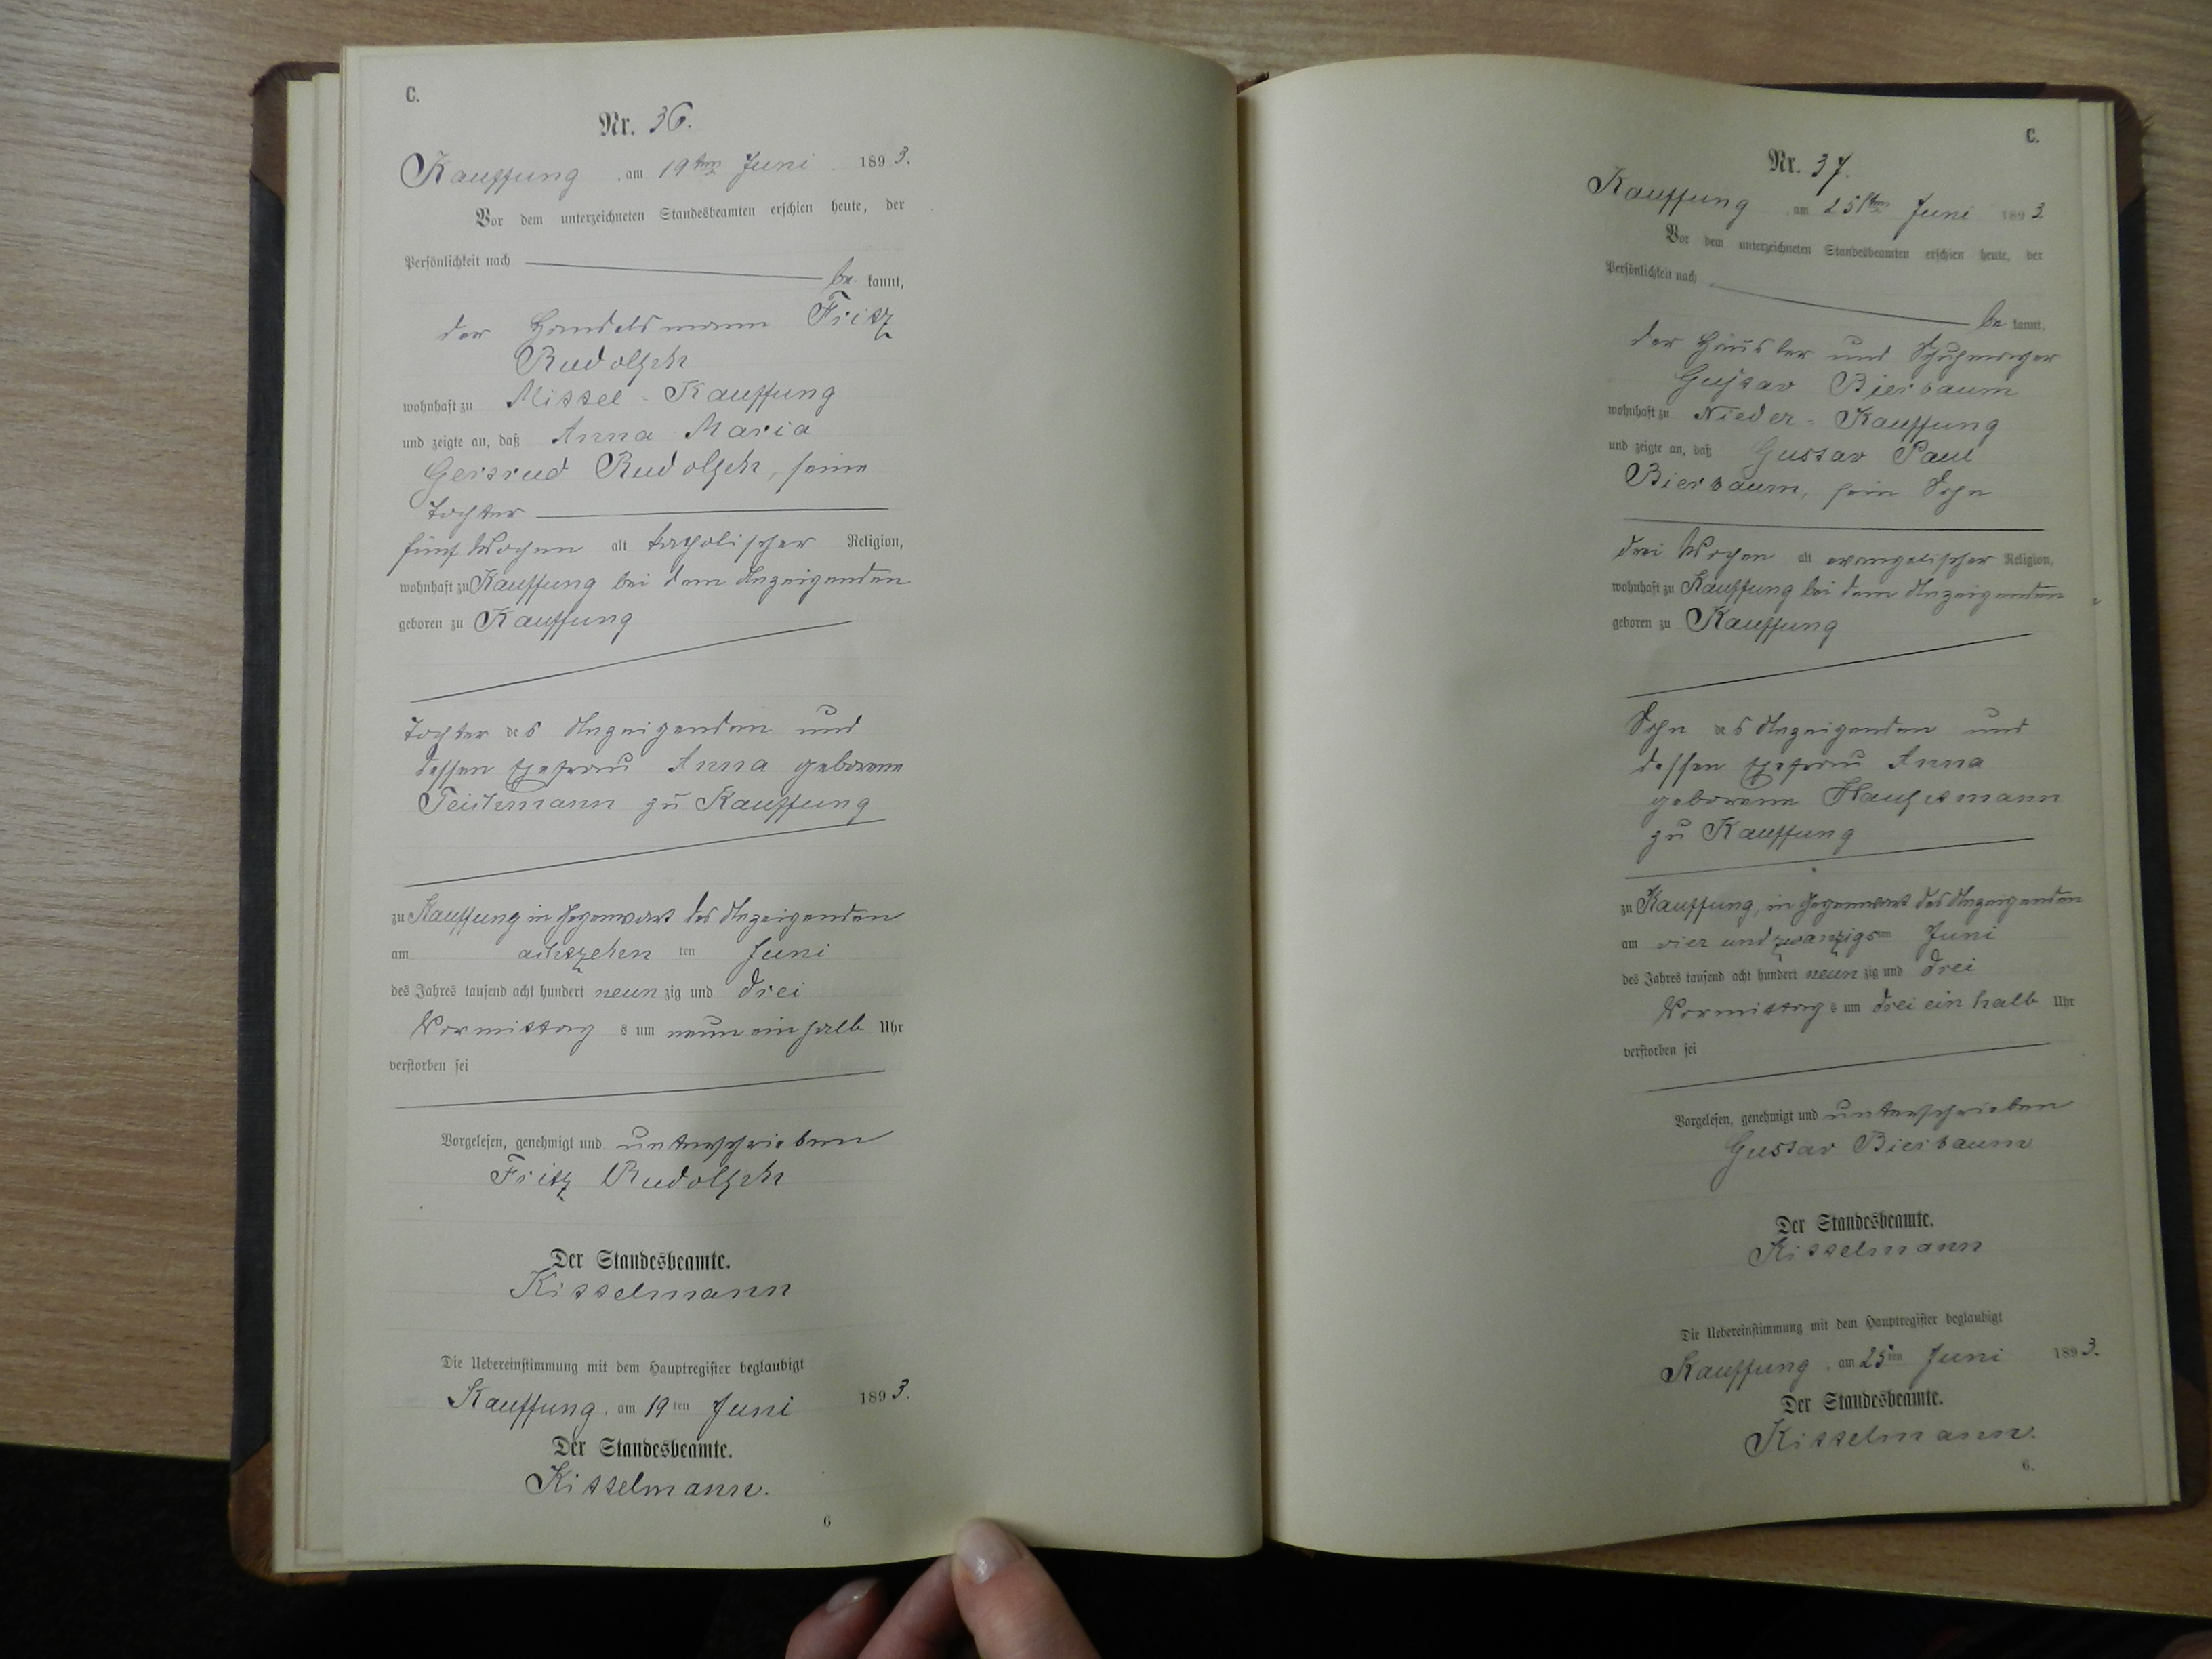 C.
Nr. 36.
Kauffung, am 19ten Juni 1893.
Vor dem unterzeichneten Standesbeamten erschien heute, der
Persönlichkeit nach be kannt,
der Handelsmann Fritz
Rudolph
wohnhaft zu Mittel-Kauffung
und zeigte an, daß Anna Maria
Gertrud Rudolph, seine
Tochter
fünf Wochen alt katholischer Religion,
wohnhaft zu Kauffung bei dem Anzeigenden
geboren zu Kauffung
Tochter des Anzeigenden und
dessen Ehefrau Anna geborene
Teichmann zu Kauffung
zu Kauffung in Gegenwart des Anzeigenden
am achtzehn ten Juni
des Jahres tausend acht hundert neun zig und drei
Vormittag s um neun ein halb Uhr
verstorben sei
Vorgelesen, genehmigt und unterschrieben
Fritz Rudolph
Der Standesbeamte.
Kisselmann
Die Uebereinstimmung mit dem Hauptregister beglaubigt
Kauffung, am 19ten Juni 1893.
Der Standesbeamte.
Kisselmann.
6
C.
Nr. 37.
Kauffung, am 25sten Juni 1893
Vor dem unterzeichneten Standesbeamten erschien heute, der
Persönlichkeit nach be kannt,
der Häusler und Schuhmacher
Gustav Bierbaum
wohnhaft zu Nieder-Kauffung
und zeigte an, daß Gustav Paul
Bierbaum, sein Sohn
drei Wochen alt evangelischer Religion,
wohnhaft zu Kauffung bei dem Anzeigenden
geboren zu Kauffung
Sohn des Anzeigenden und
dessen Ehefrau Anna
geborene
zu Kauffung
zu Kauffung, in Gegenwart des Anzeigenden
am vier und zwanzigsten Juni
des Jahres tausend acht hundert neun zig und drei
Vormittag s um drei ein halb Uhr
verstorben sei
Vorgelesen, genehmigt und unterschrieben
Gustav Bierbaum
Der Standesbeamte.
Kisselmann
Die Uebereinstimmung mit dem Hauptregister beglaubigt
Kauffung, am 25ten Juni 1893.
Der Standesbeamte.
Kisselmann.
6.